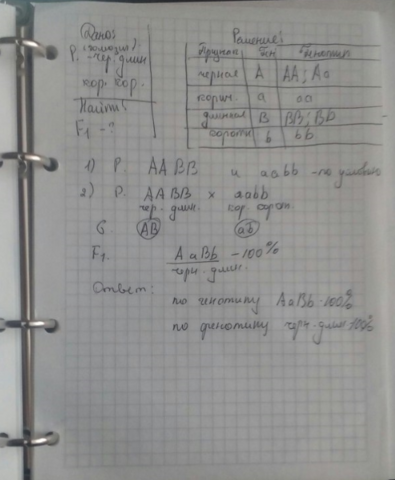 Дано:
P. (гомозиг.)
чер. длин
кор. кор.
Найти:
F₁ - ?
Решение:
Признак Ген Генотип
черная A AA; Aa
коричн. a aa
длинная B BB; Bb
коротк b bb
1) P. AABB и aabb - по условию
2) P. AABB × aabb
чер. длин. кор. корот.
G. AB ab
F₁. AaBb - 100%
черн. длин.
Ответ:
по генотипу AaBb - 100%
по фенотипу черн. длин 100%